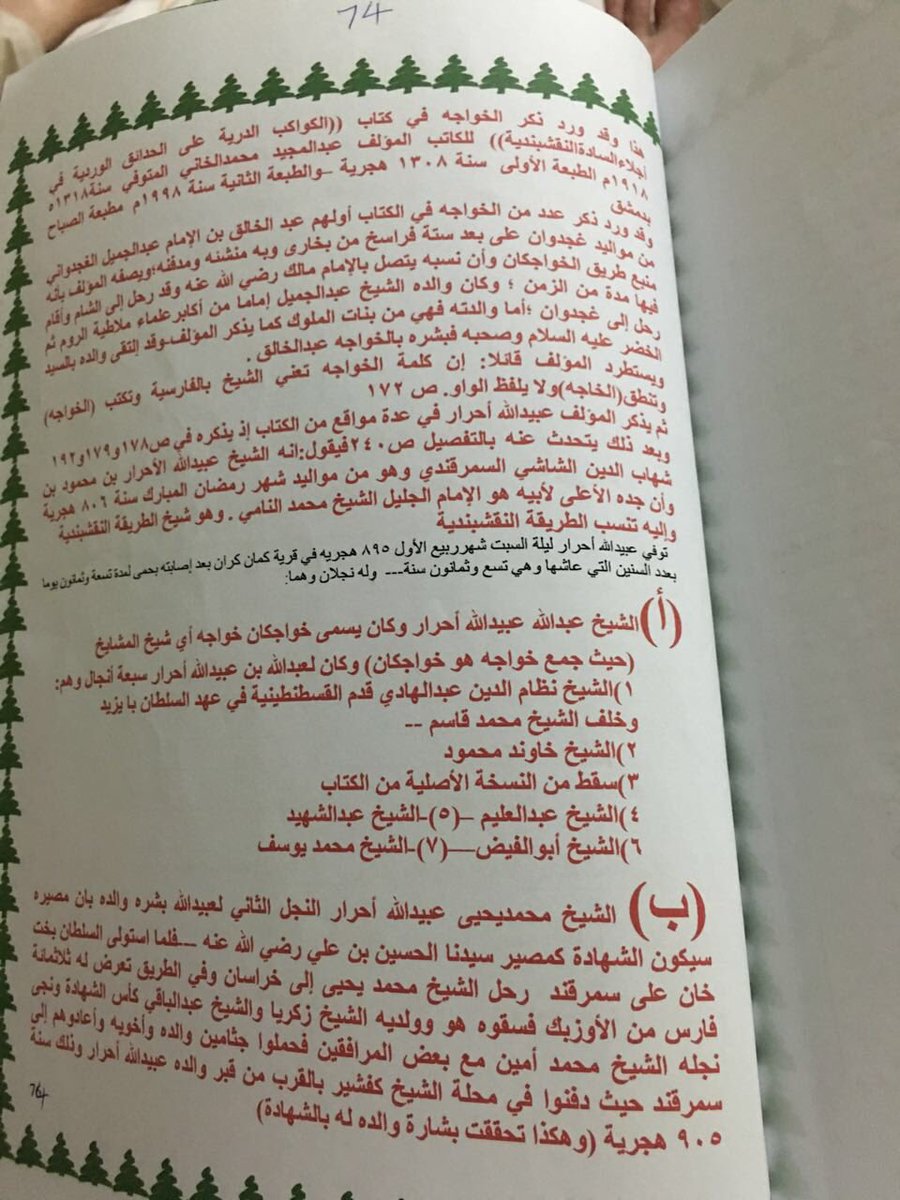 74
هذا وقد ورد ذكر الخواجه في كتاب ((الكواكب الدرية على الحدائق الوردية في
أجلاءالسادةالنقشبندية)) للكاتب المؤلف عبدالمجيد محمدالخاني المتوفي سنة١٣١٨ه
١٩١٨م الطبعة الأولى سنة ١٣٠٨ هجرية –والطبعة الثانية سنة ١٩٩٨م مطبعة الصباح
بدمشق
وقد ورد ذكر عدد من الخواجه في الكتاب أولهم عبد الخالق بن الإمام عبدالجميل الغجدواني
من مواليد غجدوان على بعد ستة فراسخ من بخارى وبه منشئه ومدفنه؛ويصفه المؤلف بأنه
منبع طريق الخواجكان وأن نسبه يتصل بالإمام مالك رضي الله عنه وقد رحل إلى الشام وأقام
فيها مدة من الزمن ؛ وكان والده الشيخ عبدالجميل إماما من أكابرعلماء ملاطية الروم ثم
رحل إلى غجدوان ؛أما والدته فهي من بنات الملوك كما يذكر المؤلف-وقد إلتقى والده بالسيد
الخضر عليه السلام وصحبه فبشره بالخواجه عبدالخالق .
ويستطرد المؤلف قائلا: إن كلمة الخواجه تعني الشيخ بالفارسية وتكتب (الخواجه)
وتنطق(الخاجه)ولا يلفظ الواو. ص ١٧٢
ثم يذكر المؤلف عبيدالله أحرار في عدة مواقع من الكتاب إذ يذكره في ص١٧٨و١٧٩و١٩٢
وبعد ذلك يتحدث عنه بالتفصيل ص٢٤٠فيقول:انه الشيخ عبيدالله الأحرار بن محمود بن
شهاب الدين الشاشي السمرقندي وهو من مواليد شهر رمضان المبارك سنة ٨٠٦ هجرية
وأن جده الأعلى لأبيه هو الإمام الجليل الشيخ محمد النامي . وهو شيخ الطريقة النقشبندية
وإليه تنسب الطريقة النقشبندية
توفي عبيدالله أحرار ليلة السبت شهرربيع الأول ٨٩٥ هجريه في قرية كمان كران بعد إصابته بحمى لمدة تسعة وثمانون يوما
بعدد السنين التي عاشها وهي تسع وثمانون سنة--- وله نجلان وهما:
(أ)الشيخ عبدالله عبيدالله أحرار وكان يسمى خواجكان خواجه أي شيخ المشايخ
(حيث جمع خواجه هو خواجكان) وكان لعبدالله بن عبيدالله أحرار سبعة أنجال وهم:
١)الشيخ نظام الدين عبدالهادي قدم القسطنطينية في عهد السلطان با يزيد
وخلف الشيخ محمد قاسم --
٢)الشيخ خاوند محمود
٣)سقط من النسخة الأصلية من الكتاب
٤)الشيخ عبدالعليم –(٥)-الشيخ عبدالشهيد
٦)الشيخ أبوالفيض—(٧)-الشيخ محمد يوسف
(ب) الشيخ محمديحيى عبيدالله أحرار النجل الثاني لعبيدالله بشره والده بان مصيره
سيكون الشهادة كمصير سيدنا الحسين بن علي رضي الله عنه ---فلما استولى السلطان بخت
خان على سمرقند رحل الشيخ محمد يحيى إلى خراسان وفي الطريق تعرض له ثلاثمائة
فارس من الأوزبك فسقوه هو وولديه الشيخ زكريا والشيخ عبدالباقي كأس الشهادة ونجى
نجله الشيخ محمد أمين مع بعض المرافقين فحملوا جثامين والده وأخويه وأعادوهم إلى
سمرقند حيث دفنوا في محلة الشيخ كفشير بالقرب من قبر والده عبيدالله أحرار وذلك سنة
٩٠٥ هجرية (وهكذا تحققت بشارة والده له بالشهادة)